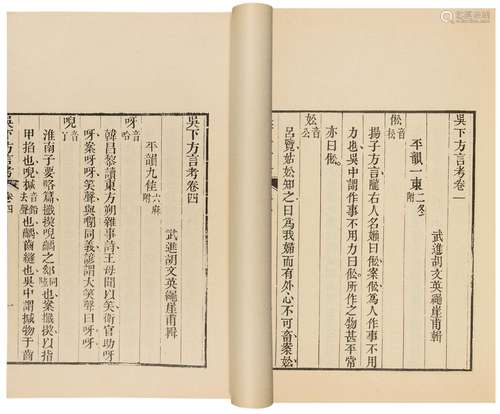 吳下方言考卷一
武進胡文英繩崖甫輯
平韻一東二冬附
倯音松
揚子方言隴右人名嬾曰倯案倯為人作事不用
力也吳中謂作事不用力曰倯所作之物甚平常
亦曰倯
妐音公
呂覽姑妐知之曰為我婦而有外心不可畜案妐
吳下方言考卷四
武進胡文英繩崖甫輯
平韻九佳六麻附
呀音哈
韓昌黎讀東方朔雜事詩王母聞以笑衛官助呀
呀案呀呀笑聲與同義諺謂大笑聲曰呀呀
唲音丫
淮南子要略篇攕揳唲齵之郄也案攕揳以指
甲掐也唲去聲也齵齒縫也吳中謂物于齒
吳下方言考
卷四